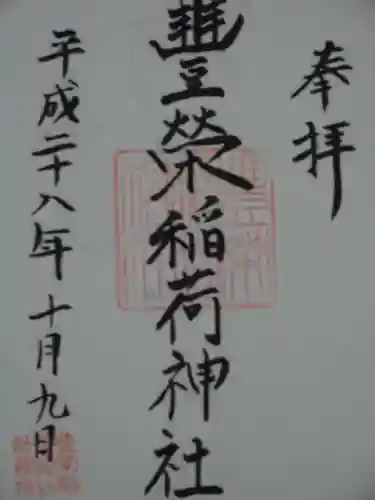 奉拝
豐榮稲荷神社
平成二十八年十月九日